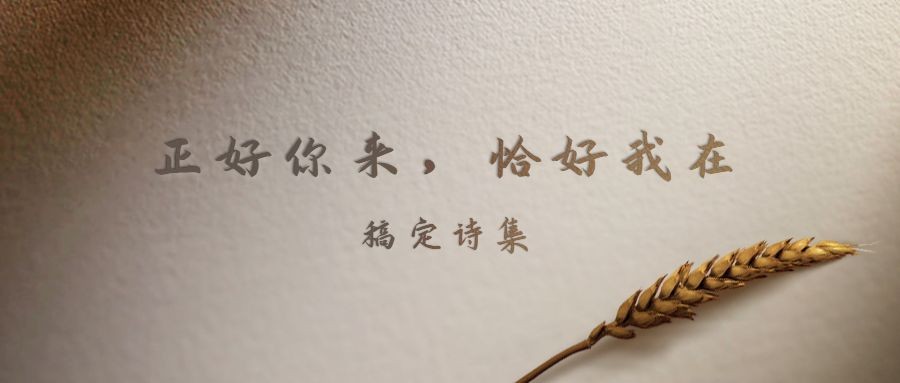 正好你来，恰好我在
稿定诗集